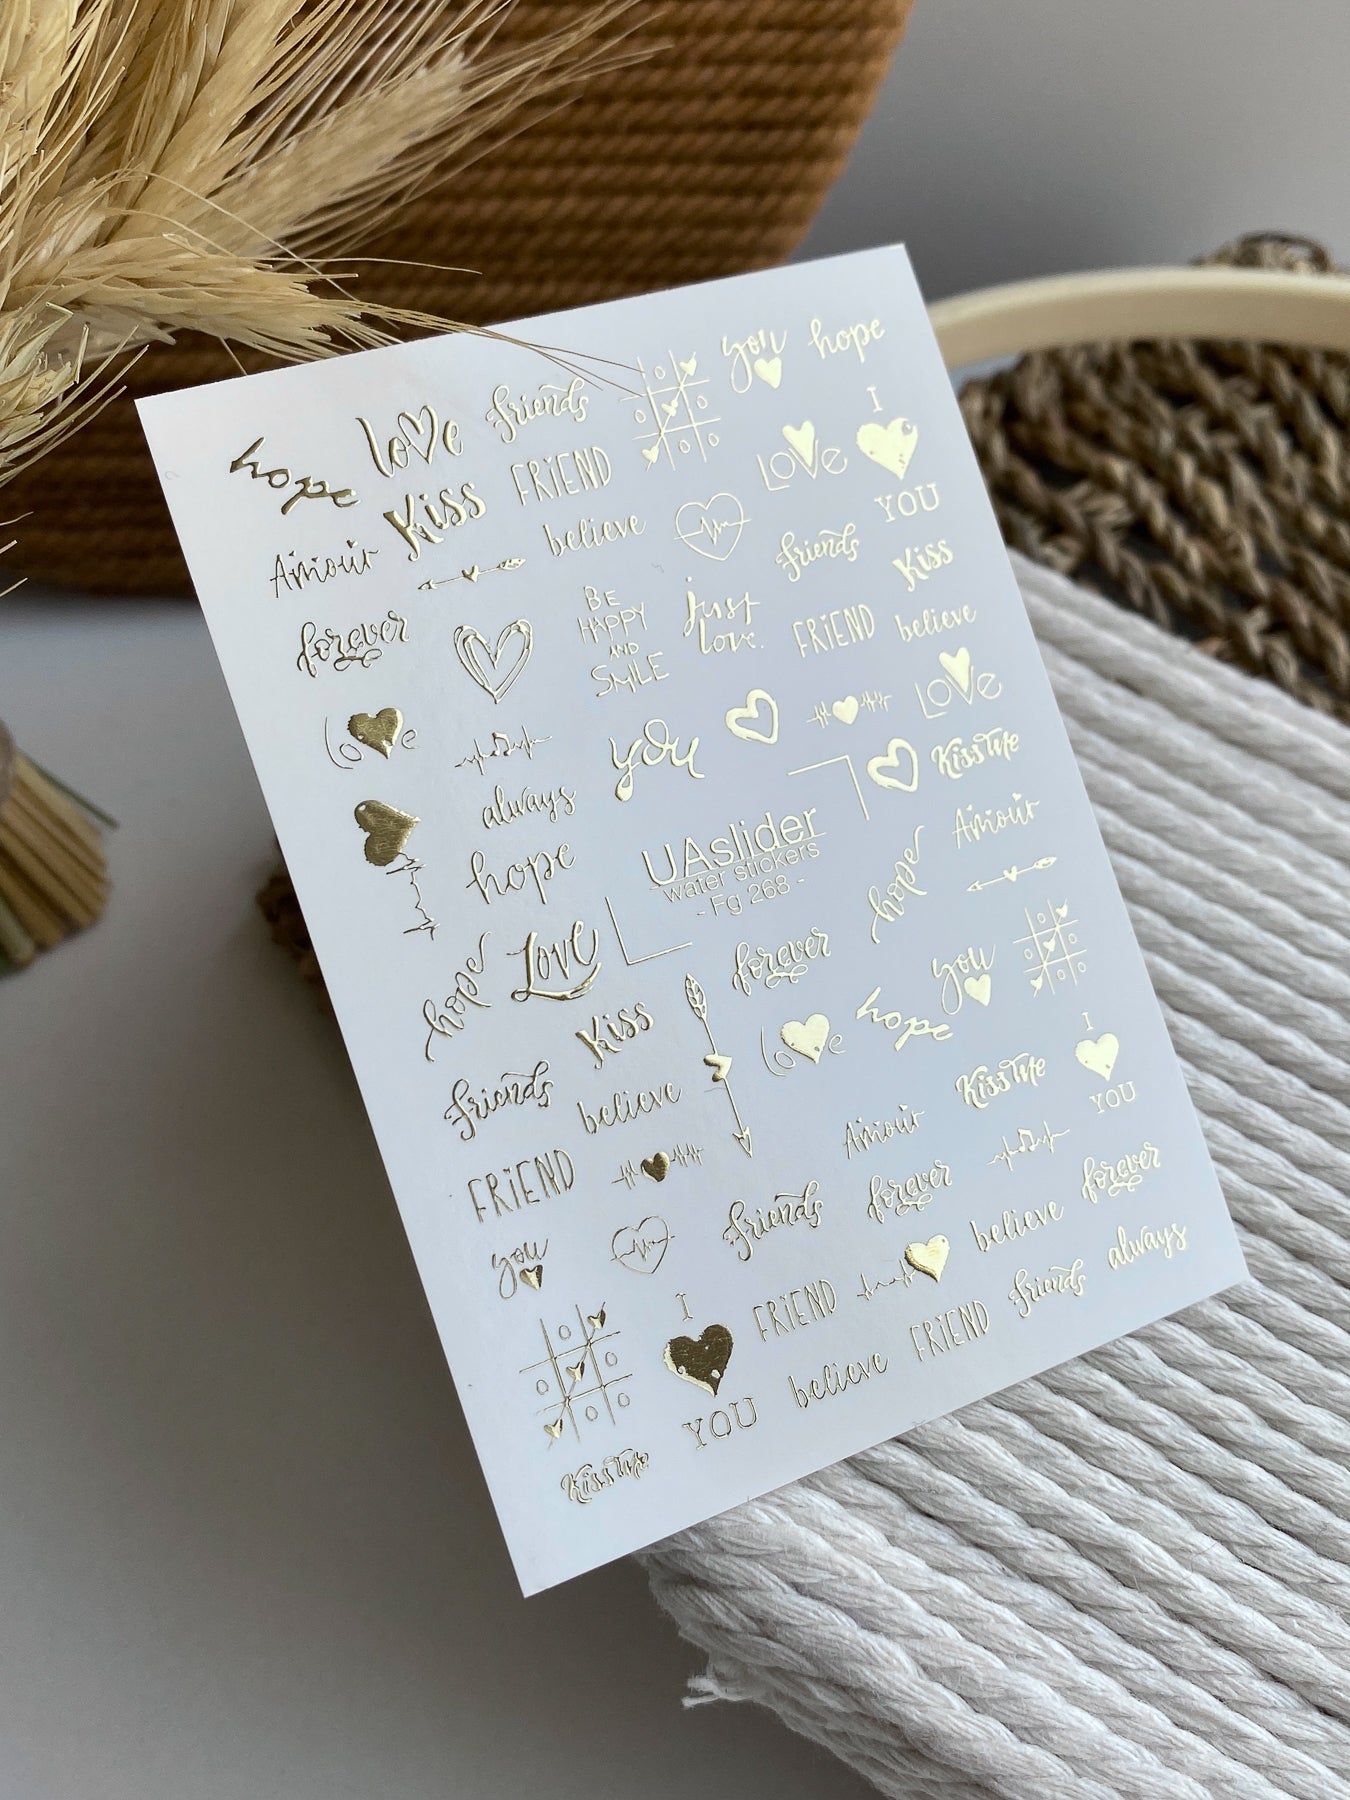 hope
love
friends
you
hope
Kiss
FRIEND
LOVE
I
YOU
Amour
believe
friends
Kiss
forever
BE
HAPPY
AND
SMILE
just
love.
FRIEND
believe
love
you
LOVE
Kiss Me
always
hope
UAslider
water stickers
- Fg 268 -
hope
Amour
hope
Love
forever
you
Kiss
love
hope
I
YOU
friends
believe
Kiss Me
Amour
FRIEND
friends
forever
forever
you
believe
always
I
YOU
FRIEND
friends
believe
FRIEND
Kiss Me